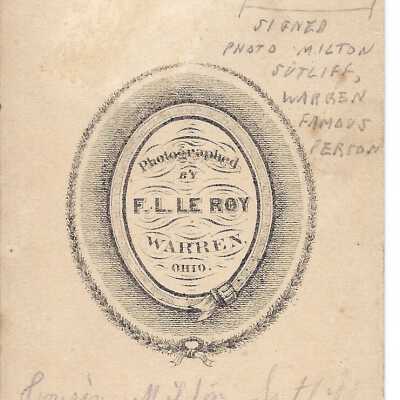 SIGNED
PHOTO MILTON
SUTLIFF,
WARREN
FAMOUS
PERSON
Photographed
BY
F. L. LE ROY
WARREN,
OHIO.
Cousin Milton Sutliff